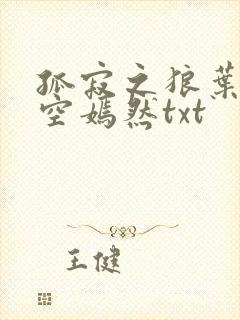 孤寂之狼叶
空嫣然txt
王健